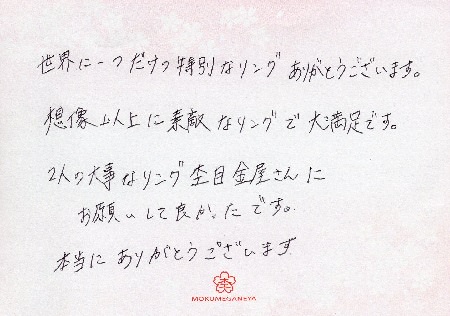 世界に一つだけの特別なリング ありがとうございます。
想像以上に素敵なリングで大満足です。
2人の大事なリング杢目金屋さんに
お願いして良かったです。
本当にありがとうございます
杢
MOKUMEGANEYA